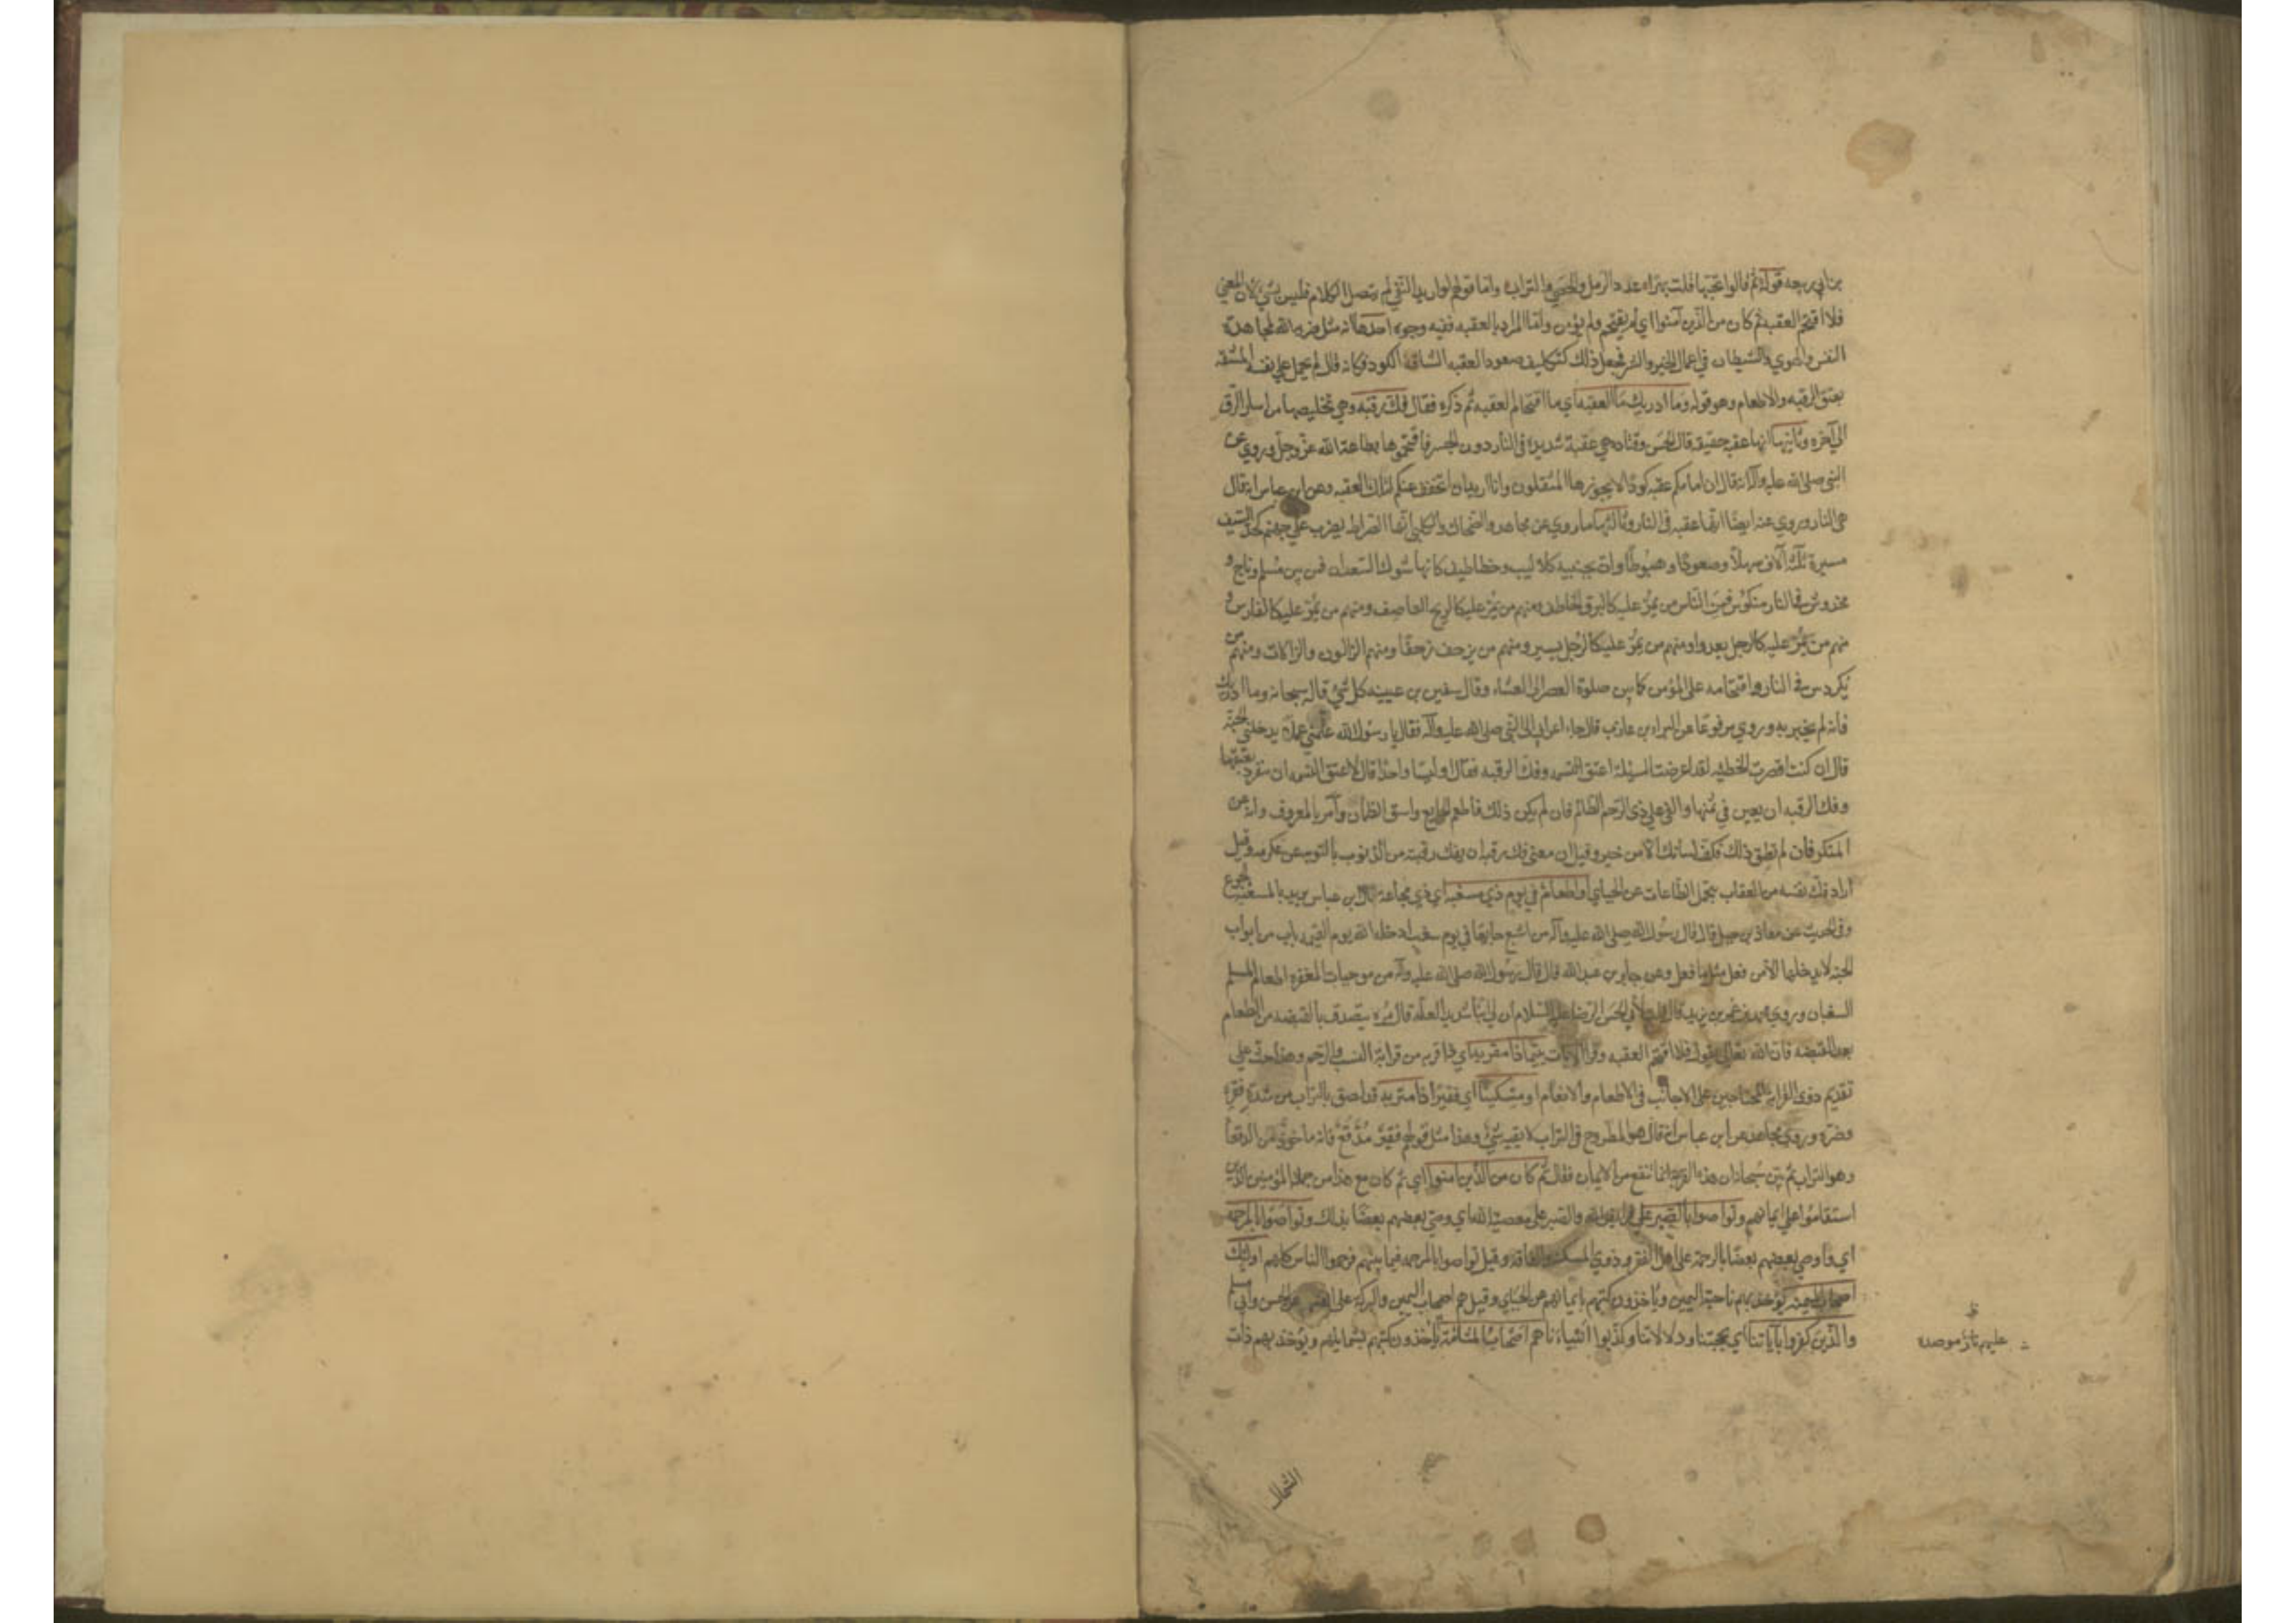 بن ابي ربيعه قوله ثم قالوا تحبها قلت بهرا عدد الرمل والحصى والتراب واما قولهم لو اريد النفي لم يتصل الكلام فليس بشيء لان المعنى
فلا اقتحم العقبه ثم كان من الذين آمنوا اي لم يقتحم ولم يؤمن واما المراد بالعقبه ففيه وجوه احدها انه مثل ضربه الله لمجاهدة
النفس والهوي والشيطان في اعمال الخير والبر فجعل ذلك كتكليف صعود العقبه الشاقه الكود فكانه قال لم يحمل على نفسه المشقه
بعتق الرقبه والاطعام وهو قوله وما ادريك ما العقبه اي ما اقتحام العقبه ثم ذكره فقال فك رقبه وهي تخليصها من اسار الرق
الي آخره وثانيها انها عقبه حقيقه قال الحسن وقتاده هي عقبة شديدة في النار دون الجسر فاقتحموها بطاعة الله عز وجل وروي عن
النبي صلى الله عليه وآله انه قال ان امامكم عقبه كودا لا يجوزها المثقلون وانا اريد ان اتخفف عنكم لتلك العقبه وعن ابن عباس انه قال
هي النار وروي عنه ايضا انها عقبه في النار وثالثها ما روي عن مجاهد والضحاك والكلبي انها الصراط يضرب على جهنم كحد السيف
مسيرة ثلثة آلاف سهلا وصعودا وهبوطا وان بجنبيه كلاليب وخطاطيف كانها شوك السعدان فمن بين مسلم وناج و
مخدوش في النار منكوس فمن الناس من يمر عليه كالبرق الخاطف ومنهم من يمر عليه كالريح العاصف ومنهم من يمر عليه كالفارس و
منهم من يمر عليه كالرجل يعدو او منهم من يمر عليه كالرجل يسير ومنهم من يزحف زحفا ومنهم الزالون والزالات ومنهم من
يكردس في النار واقتحامه على المؤمن كما بين صلوة العصر الى العشاء وقال سفين بن عيينه كل شيء قاله سبحانه وما ادريك
فانه لم يخبر به وروي مرفوعا عن البراء بن عازب قال جاء اعرابي الى النبي صلى الله عليه وآله فقال يا رسول الله علمني عملا يدخلني الجنة
قال ان كنت اقصرت الخطبه لقد اعرضت المسئلة اعتق النسمه وفك الرقبه فقال اوليسا واحدا قال لا عتق النسمه ان تنفرد بعتقها
وفك الرقبه ان يعين في ثمنها والفئ على ذي الرحم الظالم فان لم يكن ذلك فاطعم الجايع واسق الظمان وآمر بالمعروف وانه عن
المنكر فان لم تطق ذلك فكف لسانك الا من خير وقيل ان معنى فك رقبه ان يفك رقبته من الذنوب بالتوبه عن عكرمه وقيل
اراد فك نفسه من العقاب بتحمل الطاعات عن الجبايي او اطعام في يوم ذي مسغبه اي ذي مجاعه قال ابن عباس يريد بالمسغبه الجوع
وفي الحديث عن معاذ بن جبل قال قال رسول الله صلى الله عليه وآله من اشبع جايعا في يوم سغب ادخله الله يوم القيمه باب من ابواب
الجنه لا يدخلها الا من فعل مثل ما فعل وعن جابر بن عبد الله قال قال رسول الله صلى الله عليه وآله من موجبات المغفره اطعام المسلم
السغبان وروي محمد بن عمر بن يزيد قال قلت لابي الحسن الرضا عليه السلام ان لي ابنا شديد العلة قال مره يتصدق بالقبضه من الطعام
بعد القبضه فان الله تعالى يقول فلا اقتحم العقبه وقرا الايات يتيما ذا مقربه اي ذا قربه من قرابة النسب والرحم وهذا حث على
تقديم ذوي القرابة المحتاجين على الاجانب في الاطعام والانعام او مسكينا اي فقيرا ذا متربه قد لصق بالتراب من شدة فقره
وضره وروي مجاهد عن ابن عباس انه قال هو المطروح في التراب لا يقيه شيء وهذا مثل قولهم فقير مدقع فانه ماخوذ من الدقعا
وهو التراب ثم بين سبحانه ان هذه القربة انما تنفع مع الايمان فقال ثم كان من الذين امنوا اي ثم كان مع هذا من جملة المؤمنين الذين
استقاموا على ايمانهم وتواصوا بالصبر على فرايض الله والصبر على معصية الله اي وصى بعضهم بعضا بذلك وتواصوا بالمرحمه
اي واوصي بعضهم بعضا بالرحمة على اهل الفقر وذوي المسكنه والفاقه وقيل تواصوا بالمرحمه فيما بينهم فرحموا الناس كلهم اوليك
اصحاب الميمنه يؤخذ بهم ناحية اليمين وياخذون كتبهم بايمانهم عن الجبايي وقيل هم اصحاب اليمين والبركه على انفسهم عن الحسن وابي مسلم
والذين كفروا بآياتنا اي بحججنا ودلالاتنا وكذبوا انبياءنا هم اصحاب المشامة ياخذون كتبهم بشمايلهم ويؤخذ بهم ذات
عليهم نار موصده
الشمال